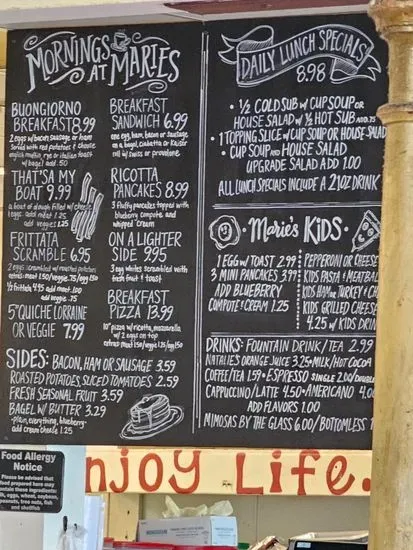 MORNINGS
AT MARIES
BUONGIORNO
BREAKFAST 8.99
2 eggs w/ bacon, sausage or ham
Served with red potatoes & choice
english muffin, rye or italian toast
w/ bagel add .50
THAT'SA MY
BOAT 9.99
a boat of dough filled w/ cheese
1 egg. add meat 1.25
add veggies 1.25
FRITTATA
SCRAMBLE 6.95
2 eggs scrambled w/ roasted potatoes
extras: meat 1.50/veggie .75/egg 1.50
1/2 frittata 4.95 add meat .100
add veggie .75
5" QUICHE LORRAINE
OR VEGGIE 7.99
BREAKFAST
SANDWICH 6.99
one egg, ham, bacon or sausage
on a bagel, ciabatta or Kaiser
roll w/ swiss or provolone
RICOTTA
PANCAKES 8.99
3 fluffy pancakes topped with
blueberry compote and
whipped cream
ON A LIGHTER
SIDE 9.95
3 egg whites scrambled with
fresh fruit & toast
BREAKFAST
PIZZA 13.99
10" pizza w/ ricotta, mozzarella
w/ 2 eggs on top
extras: meat 1.50/veggie 1.25/egg 1.50
SIDES: BACON, HAM OR SAUSAGE 3.59
ROASTED POTATOES, SLICED TOMATOES 2.59
FRESH SEASONAL FRUIT 3.59
BAGEL W/ BUTTER 3.29
-plain, everything, blueberry-
add cream cheese 1.25
DAILY LUNCH SPECIALS
8.98
• 1/2 COLD SUB W/ CUP SOUP OR
HOUSE SALAD W/ 1/2 HOT SUB ADD .75
• 1 TOPPING SLICE W/ CUP SOUP OR HOUSE SALAD
• CUP SOUP AND HOUSE SALAD
UPGRADE SALAD ADD 1.00
ALL LUNCH SPECIALS INCLUDE A 21OZ DRINK
• Marie's KIDS •
1 EGG W/ TOAST 2.99
3 MINI PANCAKES 3.99
ADD BLUEBERRY
COMPOTE & CREAM 1.25
PEPPERONI OR CHEESE
KIDS PASTA & MEATBAL
KIDS HAM OR TURKEY & CH
KIDS GRILLED CHEESE
4.25 W/ KIDS DRIN
DRINKS: FOUNTAIN DRINK/TEA 2.99
NATALIES ORANGE JUICE 3.25 • MILK/HOT COCOA
COFFEE/TEA 1.59 • ESPRESSO SINGLE 2.00/DOUBLE
CAPPUCCINO/LATTE 4.50 • AMERICANO 4.00
ADD FLAVORS 1.00
MIMOSAS BY THE GLASS 6.00/BOTTOMLESS 1
njoy Life.
Food Allergy
Notice
Please be advised that
food prepared here may
contain these ingredients:
milk, eggs, wheat, soybean,
peanuts, tree nuts, fish
and shellfish